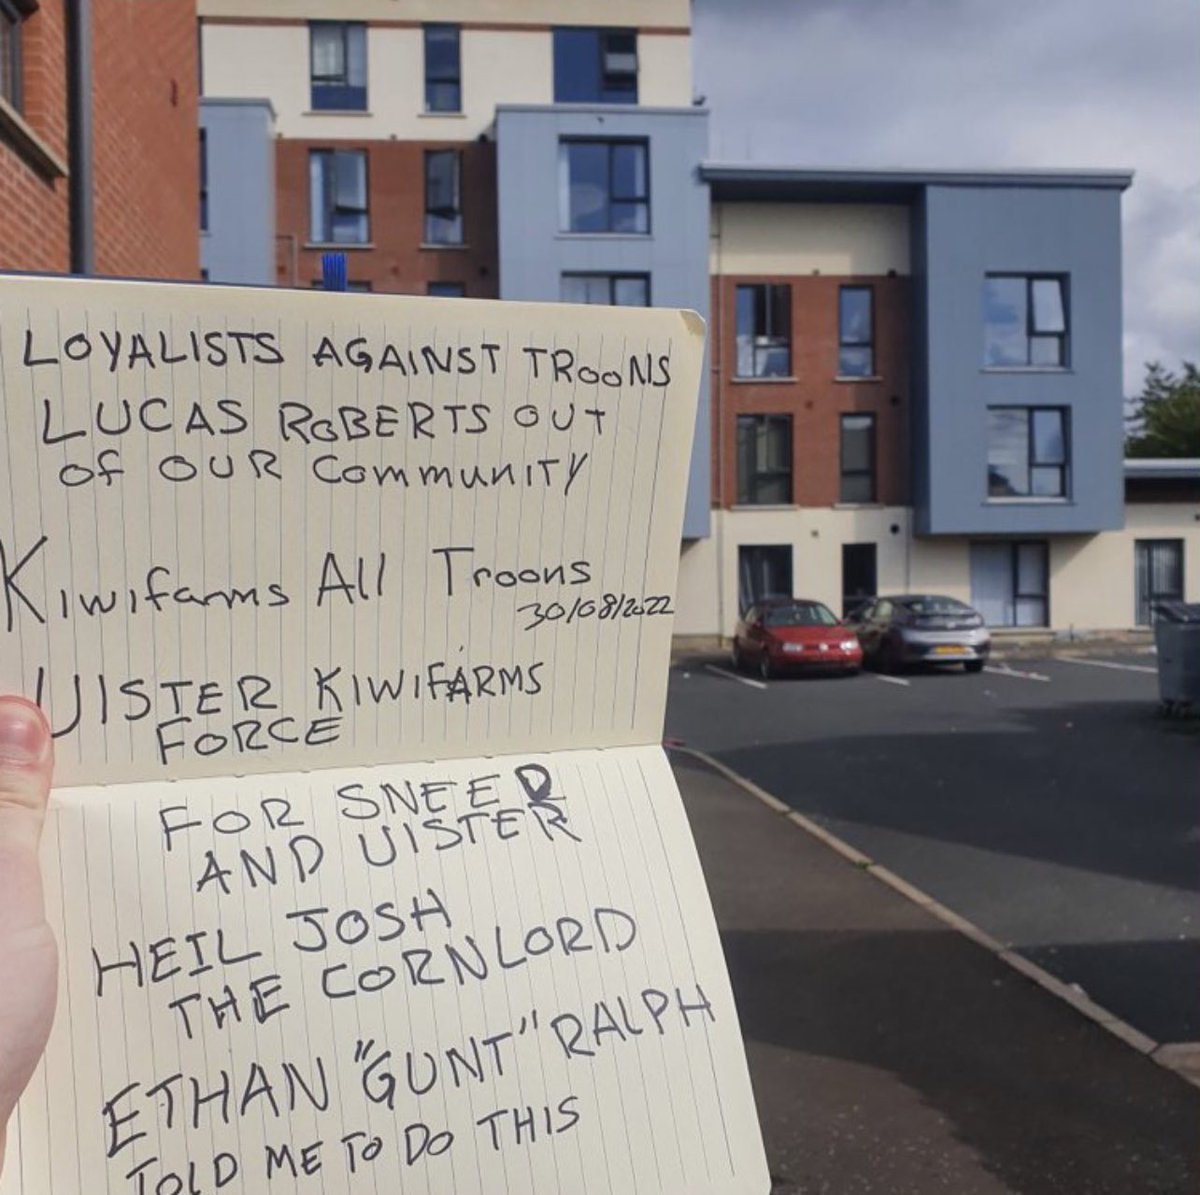 LOYALISTS AGAINST TROONS
LUCAS ROBERTS OUT
OF OUR COMMUNITY
Kiwifarms All Troons
30/08/2022
UlSTER KIWIFARMS
FORCE
FOR SNEED
AND UlSTER
HEIL JOSH
THE CORNLORD
ETHAN "GUNT" RALPH
TOLD ME TO DO THIS